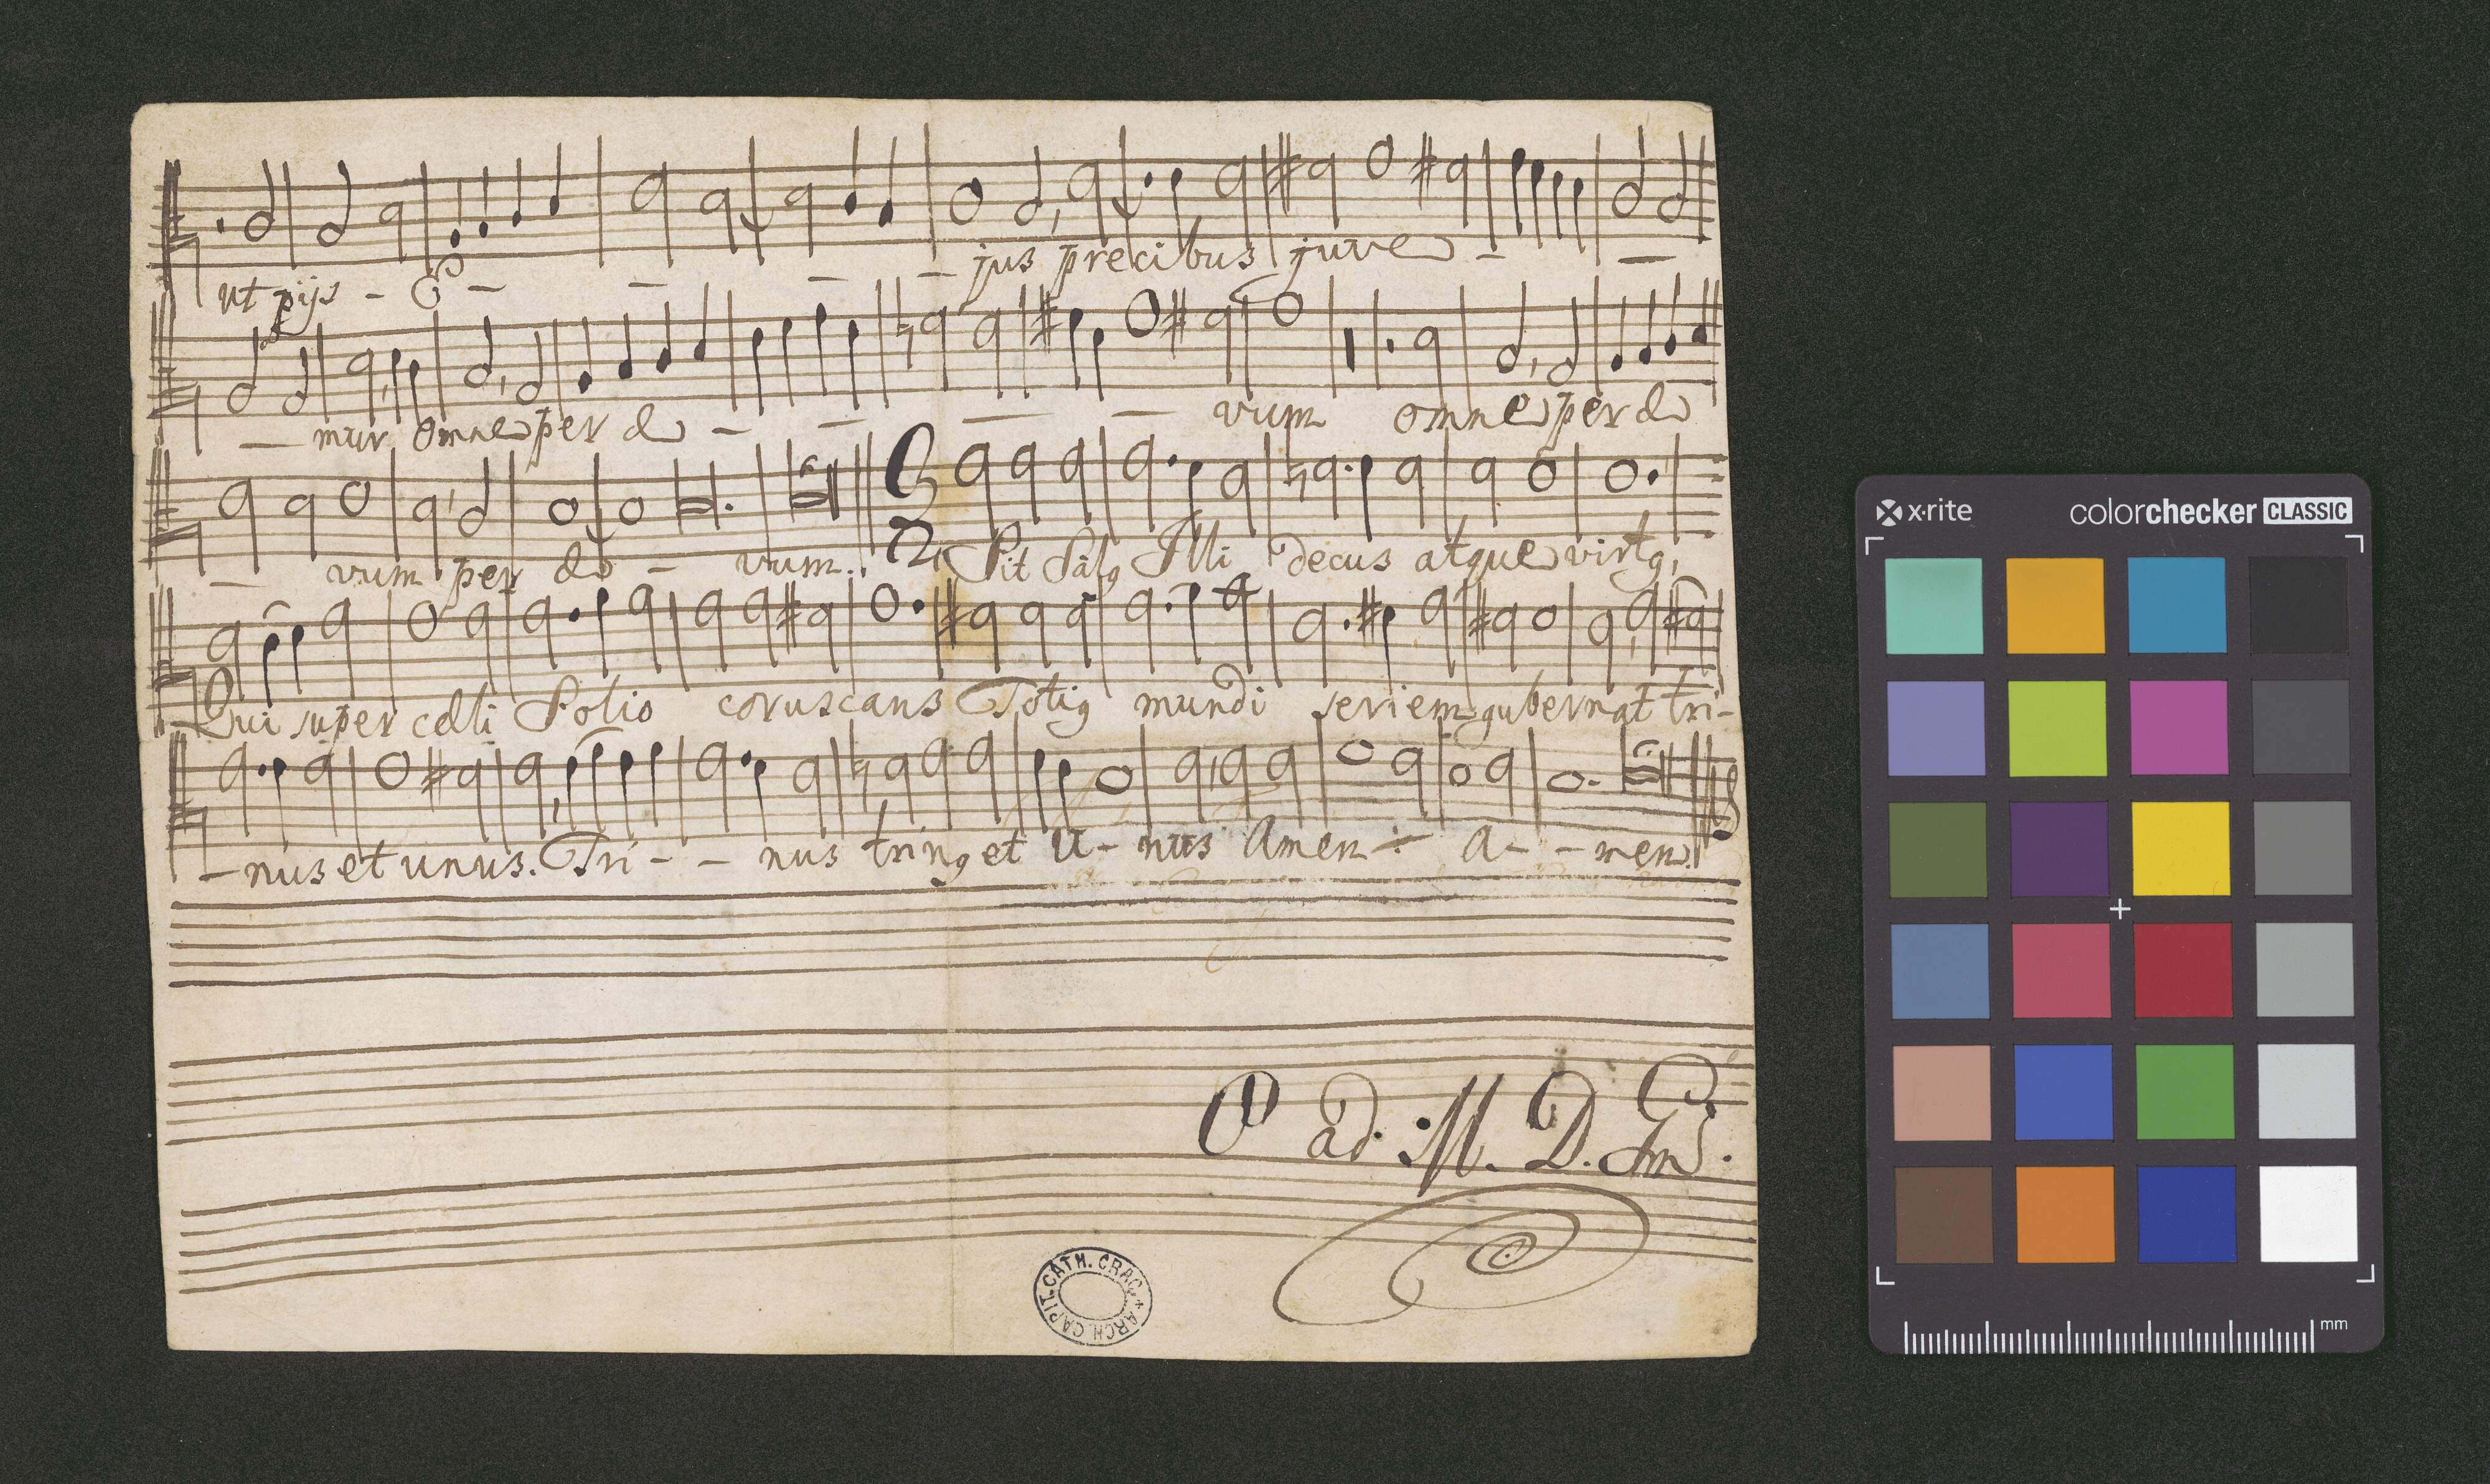 ut pijs - e - - - - jus precibus juve - -
- mur omne per æ - - - - vum omne per æ
- vum per æ - vum. Sit Salꝰ Illi decus atque virtꝰ,
Qui super cæli Solio coruscans Totiꝰ mundi seriem gubernat tri-
- nus et unus. Tri - - nus trinꝰ et u - nus Amen ·/· A - - men.
O ad. M. D. G.
CAPIT. CATH. CRAC. * ARCH.
x-rite colorchecker CLASSIC
mm